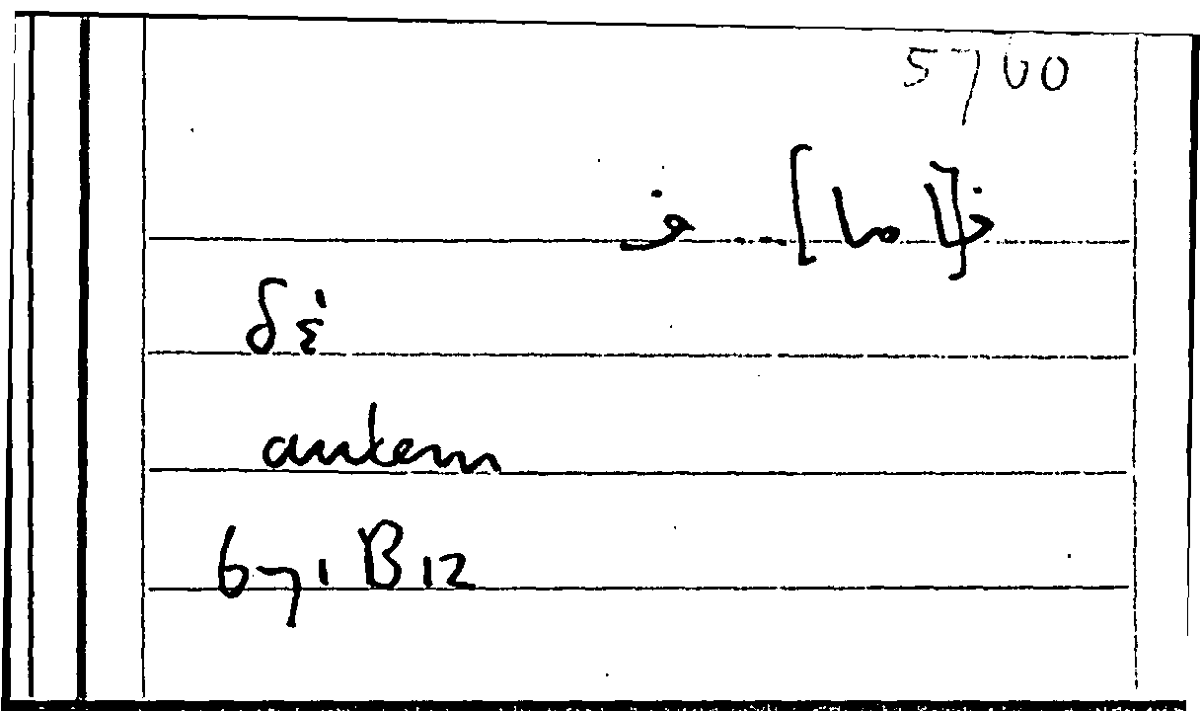 5760
ف[اما] ... ف
δέ
autem
671 B 12